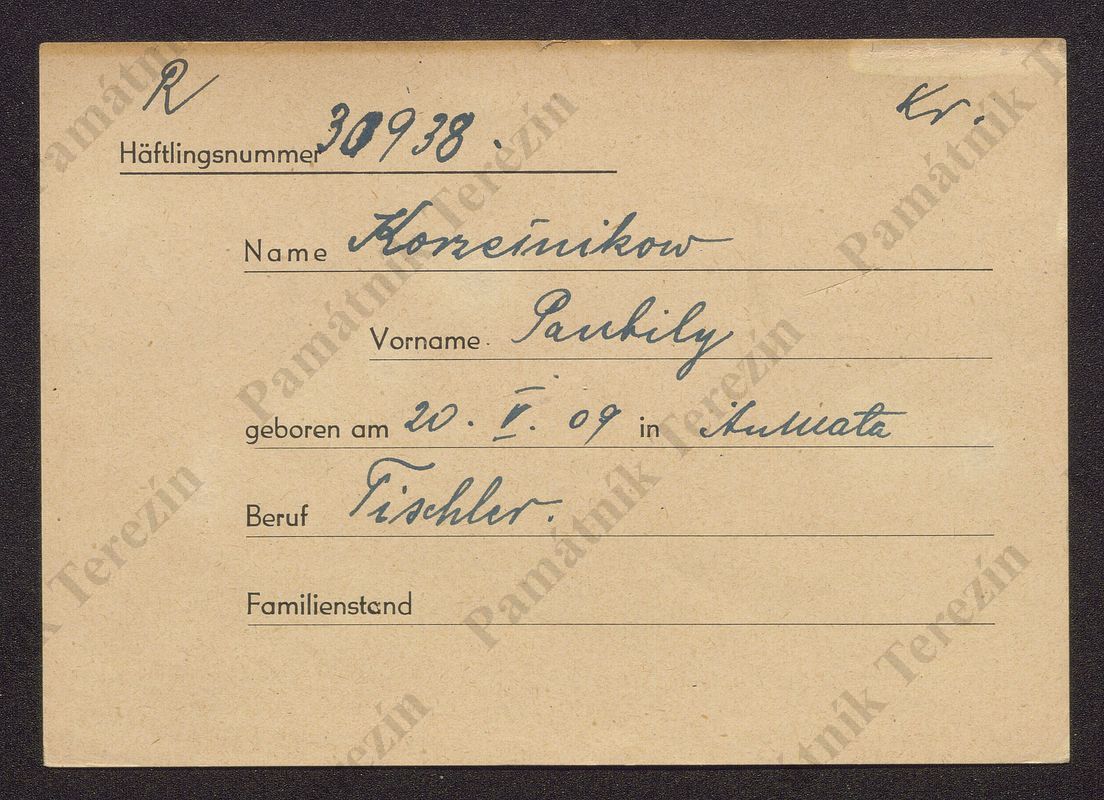 R
Kr.
Häftlingsnummer 30938.
Name Korzeinikow
Vorname Pantily
geboren am 20. V. 09 in
Beruf Tischler.
Familienstand
Památník Terezín